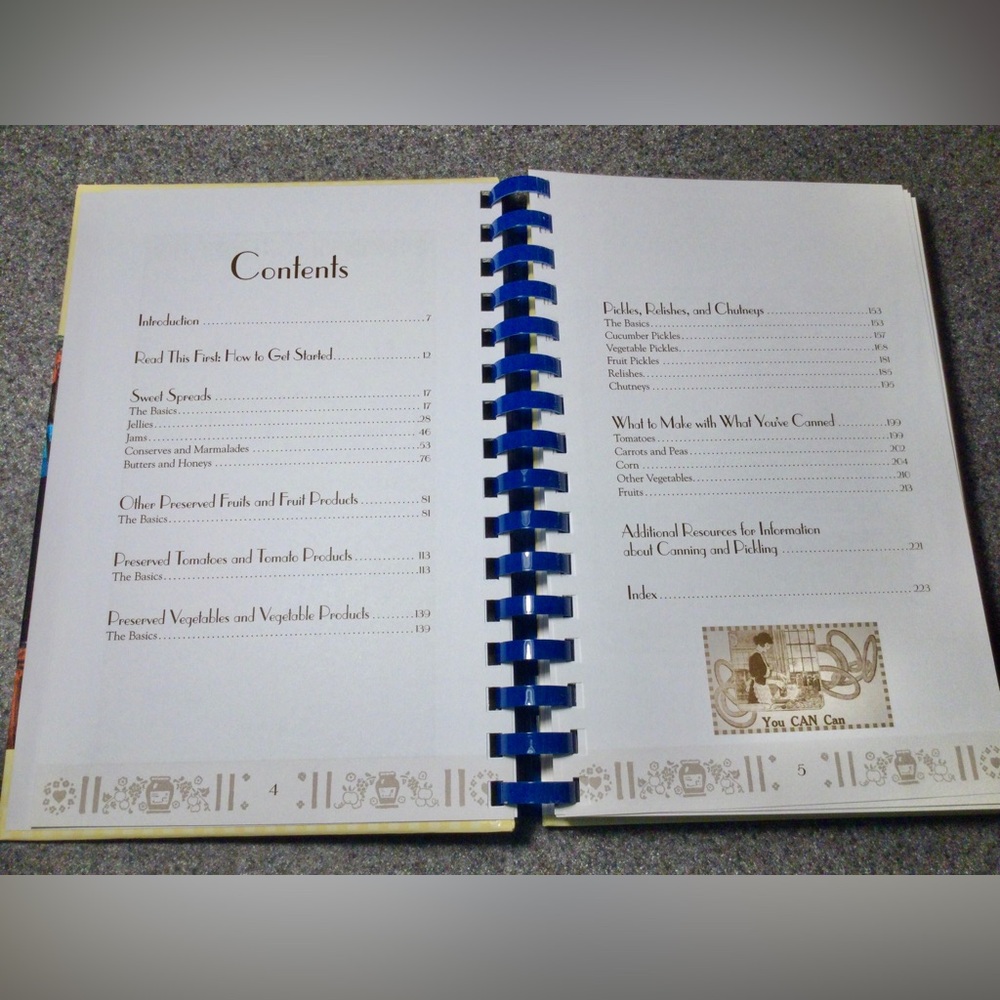 Contents
Introduction ........ 7
Read This First: How to Get Started........ 12
Sweet Spreads ........ 17
The Basics........ 17
Jellies........ 28
Jams........ 46
Conserves and Marmalades ........ 53
Butters and Honeys ........ 76
Other Preserved Fruits and Fruit Products ........ 81
The Basics........ 81
Preserved Tomatoes and Tomato Products........ 113
The Basics........ 113
Preserved Vegetables and Vegetable Products ........ 139
The Basics........ 139
4
Pickles, Relishes, and Chutneys ........ 153
The Basics........ 153
Cucumber Pickles........ 157
Vegetable Pickles........ 168
Fruit Pickles ........ 181
Relishes........ 185
Chutneys ........ 195
What to Make with What You've Canned ........ 199
Tomatoes........ 199
Carrots and Peas........ 202
Corn ........ 204
Other Vegetables........ 210
Fruits........ 213
Additional Resources for Information
about Canning and Pickling ........ 221
Index........ 223
You CAN Can
5